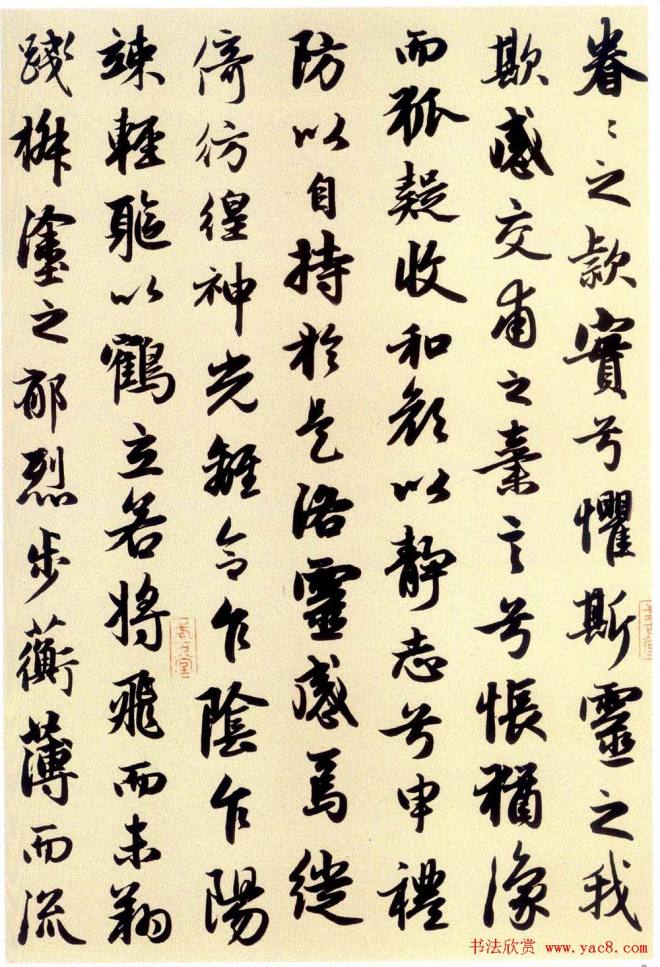 眷〻之款實兮懼斯靈之我
欺感交甫之棄言兮悵猶豫
而狐疑收和顔以静志兮申禮
防以自持於是洛靈感焉徙
倚彷徨神光離合乍陰乍陽
竦輕軀以鶴立若將飛而未翔
踐椒塗之郁烈步蘅薄而流
书法欣赏 www.yac8.com